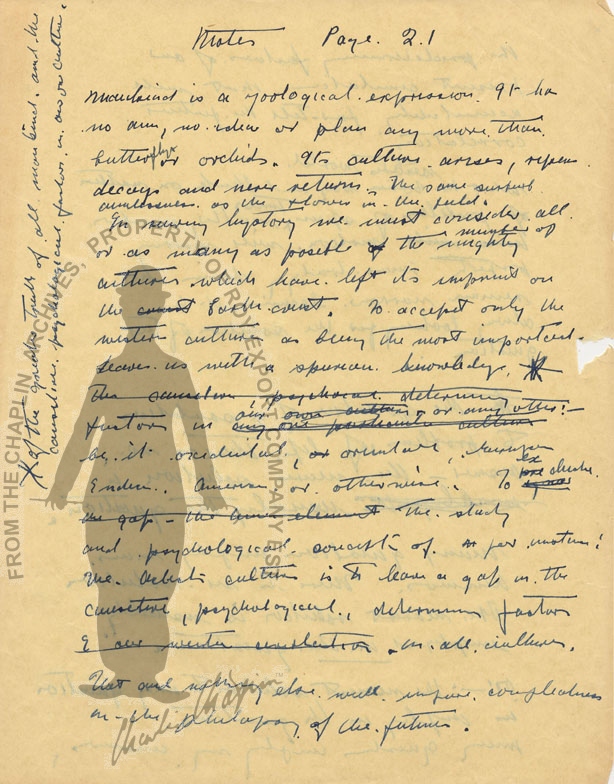 Notes Page. 2.1
Mankind is a zoological expression. It ha
no aim, no idea or plan any more than
butterflys or orchids. Its culture arises, ripens
decays and never returns. The same
aimlessness as the flower in the field.
In history we must consider all
or as many as posible of the number of
mighty
cultures which have left its imprint on
the Earth-crust. To accept only the
western culture as being the most important
leaves us with a knowledge.
The psychical determing
factors in our own culture or any other!
be it occidental, or orientale,
American or otherwise. To
the gap – the element The study
and psychological concept of
culture is to leave a gap in the
causative, psychological, determing factors
in all cultures.
else will
in the philosophy of the future.
of the greater truth of all mankind. and the
causative psychological factor in our own culture.
FROM THE CHAPLIN ARCHIVES, PROPERTY OF ROY EXPORT COMPANY EST
Charlie Chaplin